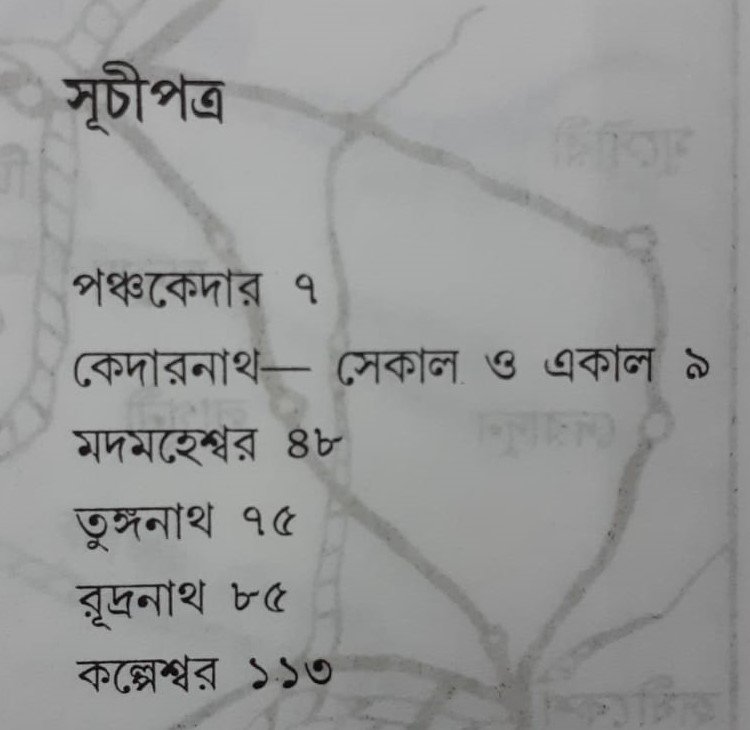 সূচীপত্র
পঞ্চকেদার ৭
কেদারনাথ— সেকাল ও একাল ৯
মদমহেশ্বর ৪৮
তুঙ্গনাথ ৭৫
রূদ্রনাথ ৮৫
কল্পেশ্বর ১১৩